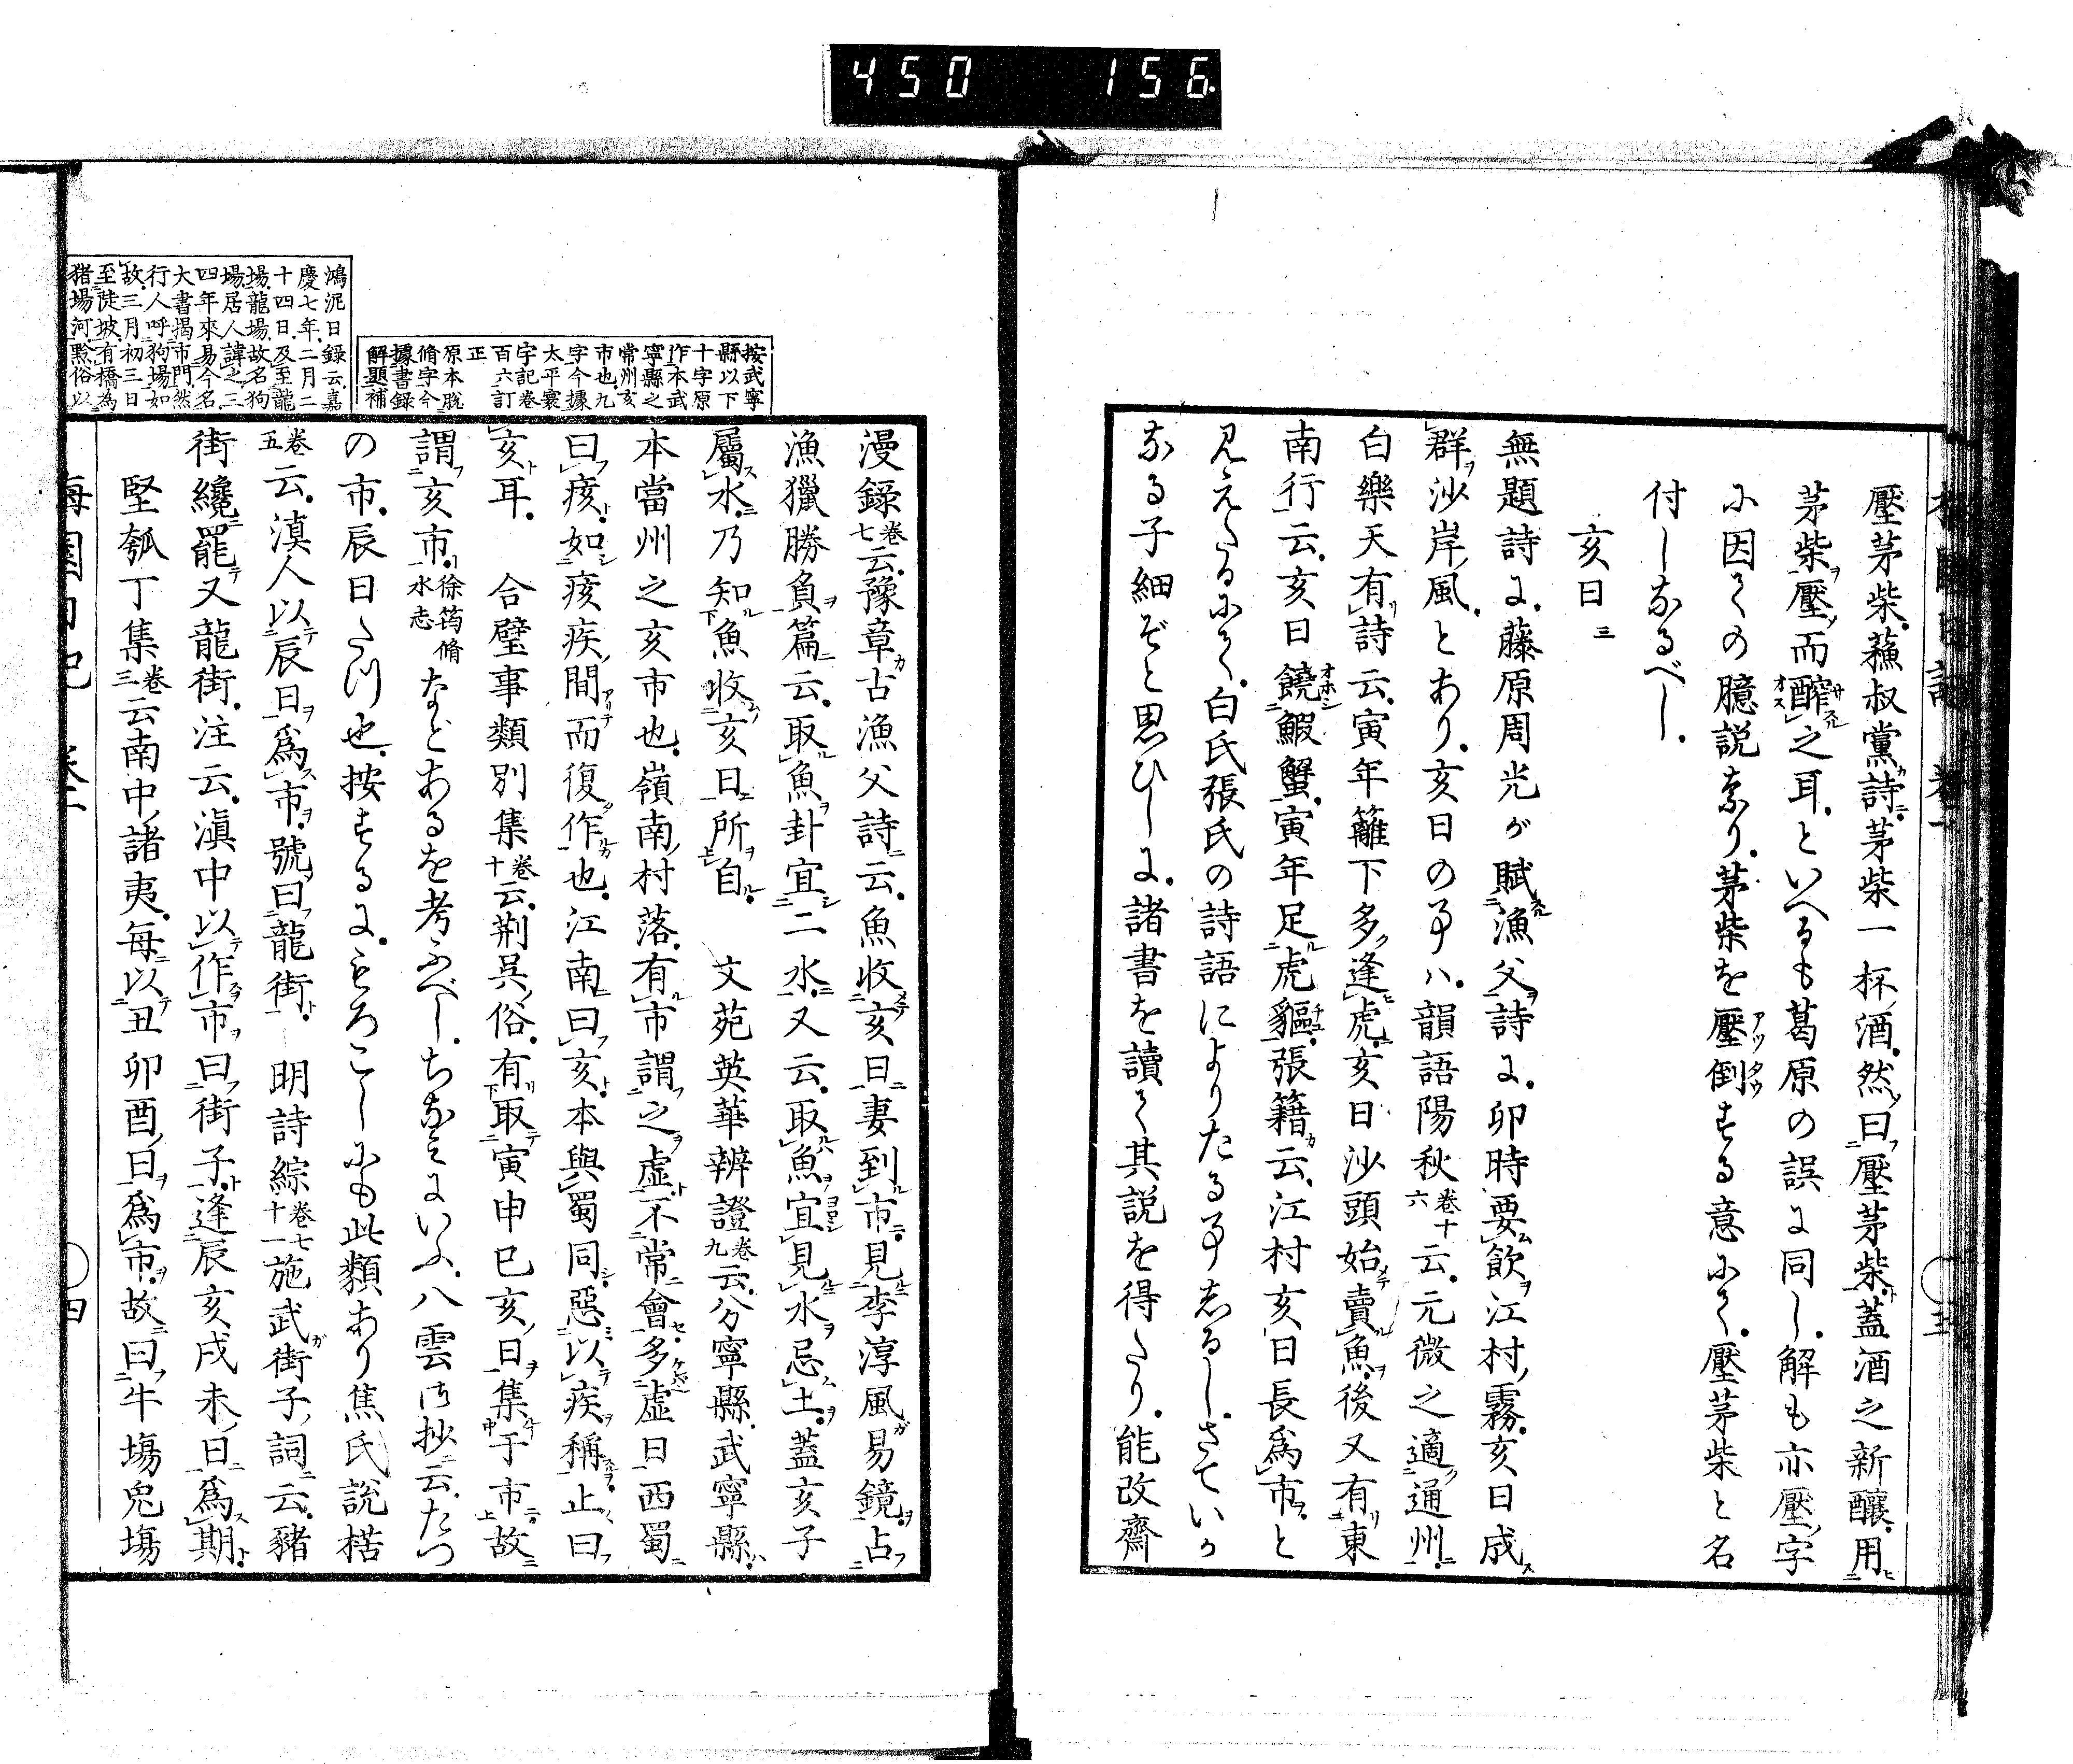 450 156
壓茅柴蘓叔黨詩茅柴一杯酒然曰壓茅柴蓋酒之新釀用
茅柴壓而醡之耳といへるも葛原の誤に同し解も亦壓字
に因ての臆説なり茅柴を壓倒する意にて壓茅柴と名
付しなるべし
亥日三
無題詩に藤原周光が賦漁父詩に卯時要飲江村霧亥日成
群沙岸風とあり亥日の事ハ韻語陽秋卷十六云元微之適通州
白樂天有詩云寅年籬下多逢虎亥日沙頭始賣魚後又有東
南行云亥日饒鰕蟹寅年足虎貙張籍云江村亥日長爲市と
見えたるにて白氏張氏の詩語によりたる事しるしさていか
なる子細ぞと思ひしに諸書を讀て其説を得たり能改齋
按武寧
縣以下
十字原
作本武
寧縣之
常州亥
市也九
字今據
太平寰
宇記卷
百六訂
正
原本脫
脩字今
據書録
解題補
鴻泥日録云嘉
慶七年二月二
十四日及至龍
場龍場故名狗
場居人諱之三
四年來易今名
大書揭市門然
行人呼狗場如
故三月初三日
至陡坡有橋為
猪場河黔俗以
漫録卷七云豫章古漁父詩云魚收亥日妻到市見李淳風易鏡占
漁獵勝負篇云取魚卦宜二水又云取魚宜見水忌土蓋亥子
屬水乃知魚收亥日所自　文苑英華辨證卷九云分寧縣武寧縣
本當州之亥市也嶺南村落有市謂之虛不常會多虛日西蜀
曰痎如痎疾間而復作也江南曰亥本與蜀同惡以疾稱止曰
亥耳　合璧事類別集卷十云荊吳俗有取寅申巳亥日集于市故
謂亥市徐筠脩水志などあるを考ふべしちなみにいふ八雲御抄云たつ
の市辰日たつ也按するにもろこしにも此類あり焦氏說楛
卷五云滇人以辰日爲市號曰龍街　明詩綜卷七十一施武街子詞云豬
街纔罷又龍街注云滇中以作市曰街子逢辰亥戌未日爲期
堅瓠丁集卷三云南中諸夷每以丑卯酉日爲市故曰牛場兔場